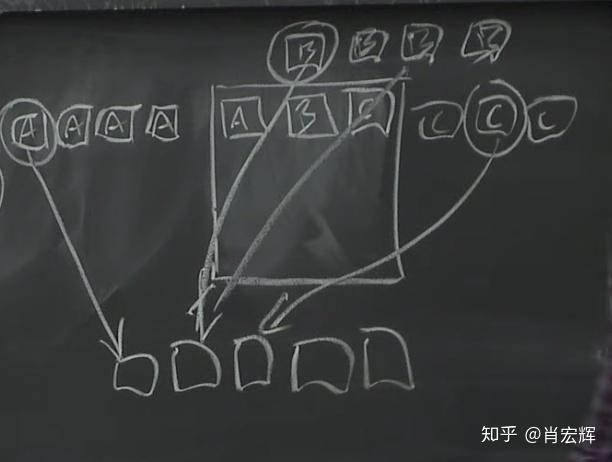 B B B B
A A A A A B C C C C
知乎 @肖宏辉